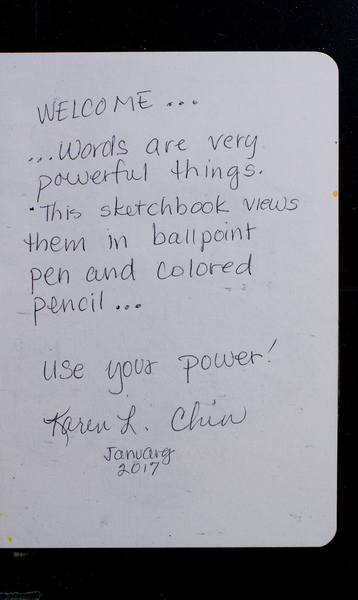 WELCOME ...
...Words are very
powerful things.
This sketchbook views
them in ballpoint
pen and colored
pencil...
use your power!
Karen L. Chin
January
2017